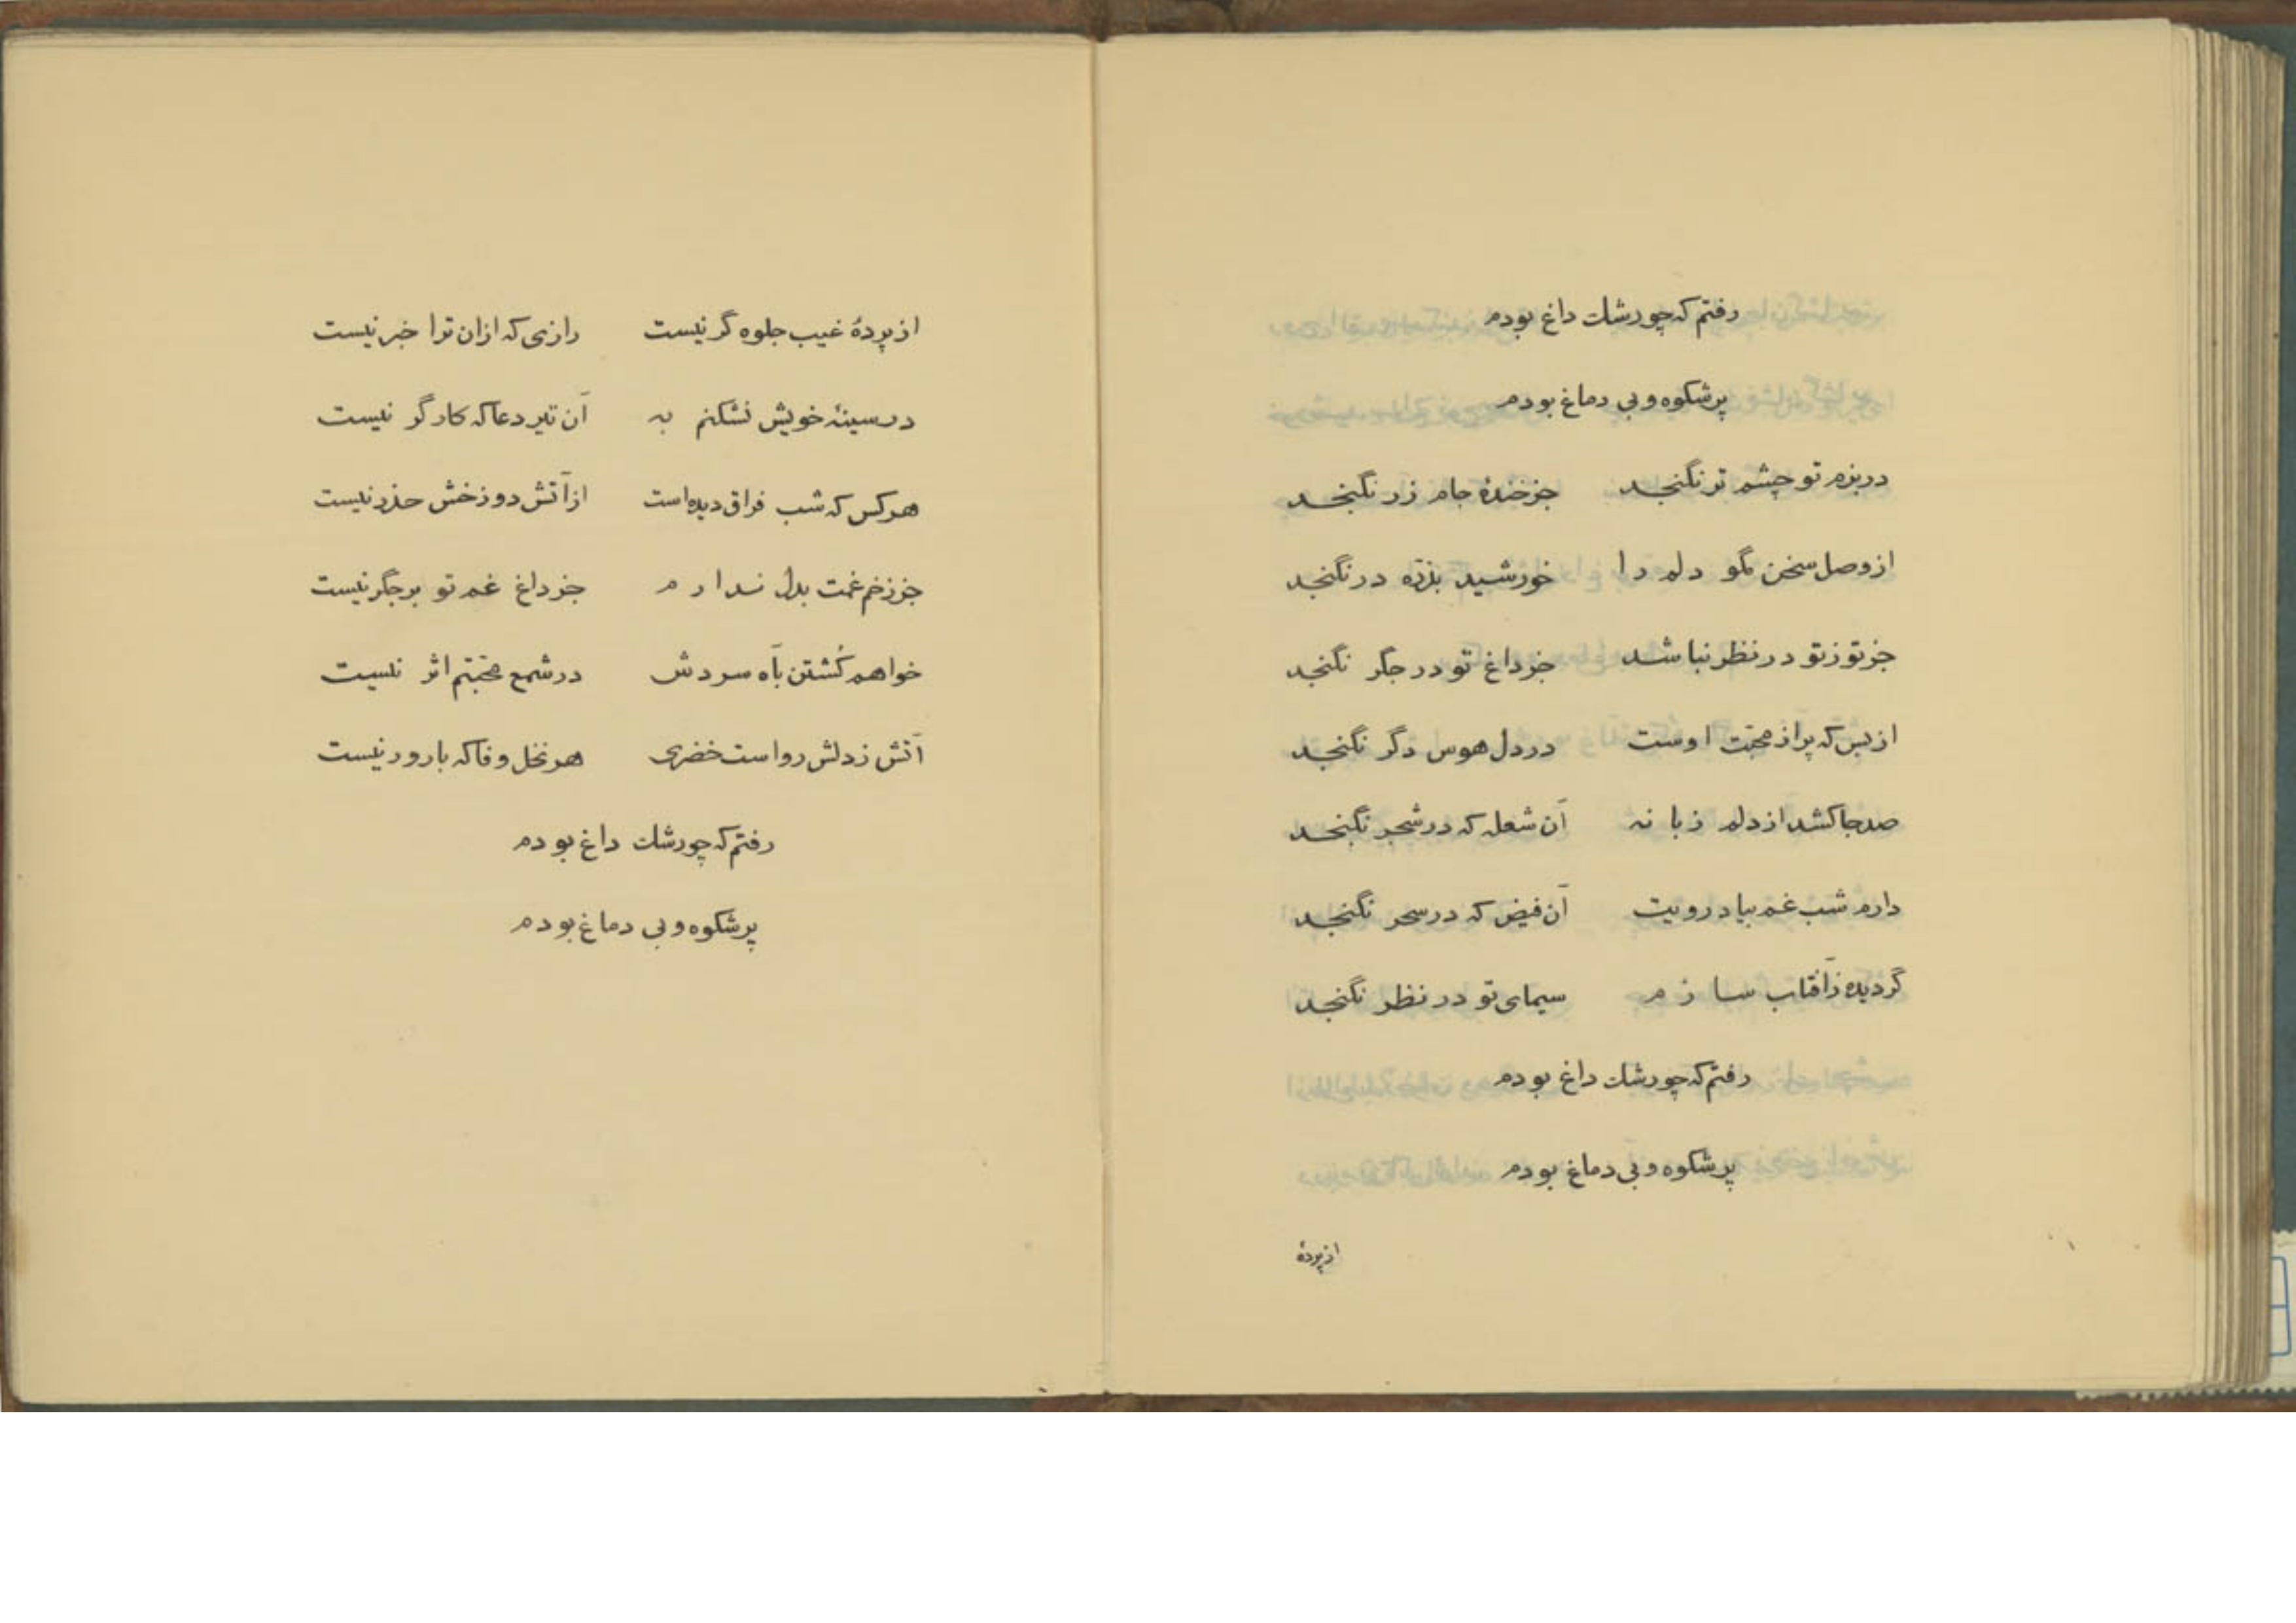 رفتم که چو رشک داغ بودم
پرشکوه و بی دماغ بودم
در بزم تو چشم تر نگنجد جز خندهٔ جام زر نگنجد
از وصل سخن مگو دلم را خورشید بذرّه در نگنجد
جز تو ز تو در نظر نباشد جز داغ تو در جگر نگنجد
از بس که پر از محبّت اوست در دل هوس دگر نگنجد
صد جا کشد از دلم زبانه آن شعله که در شجر نگنجد
دارم شب غم بیاد رویت آن فیض که در سحر نگنجد
گر دیده ز آفتاب سازم سیمای تو در نظر نگنجد
رفتم که چو رشک داغ بودم
پرشکوه و بی دماغ بودم
از پردهٔ
از پردهٔ غیب جلوه گر نیست رازی که ازان ترا خبر نیست
در سینهٔ خویش نشکنم به آن تیر دعا که کارگر نیست
هر کس که شب فراق دیده است از آتش دوزخش حذر نیست
جز زخم غمت بدل ندارم جز داغ غم تو بر جگر نیست
خواهم کُشتن بآه سردش در شمع محبّتم اثر نیست
آتش زدلش رواست خضری هر نخل وفا که بارور نیست
رفتم که چو رشک داغ بودم
پرشکوه و بی دماغ بودم